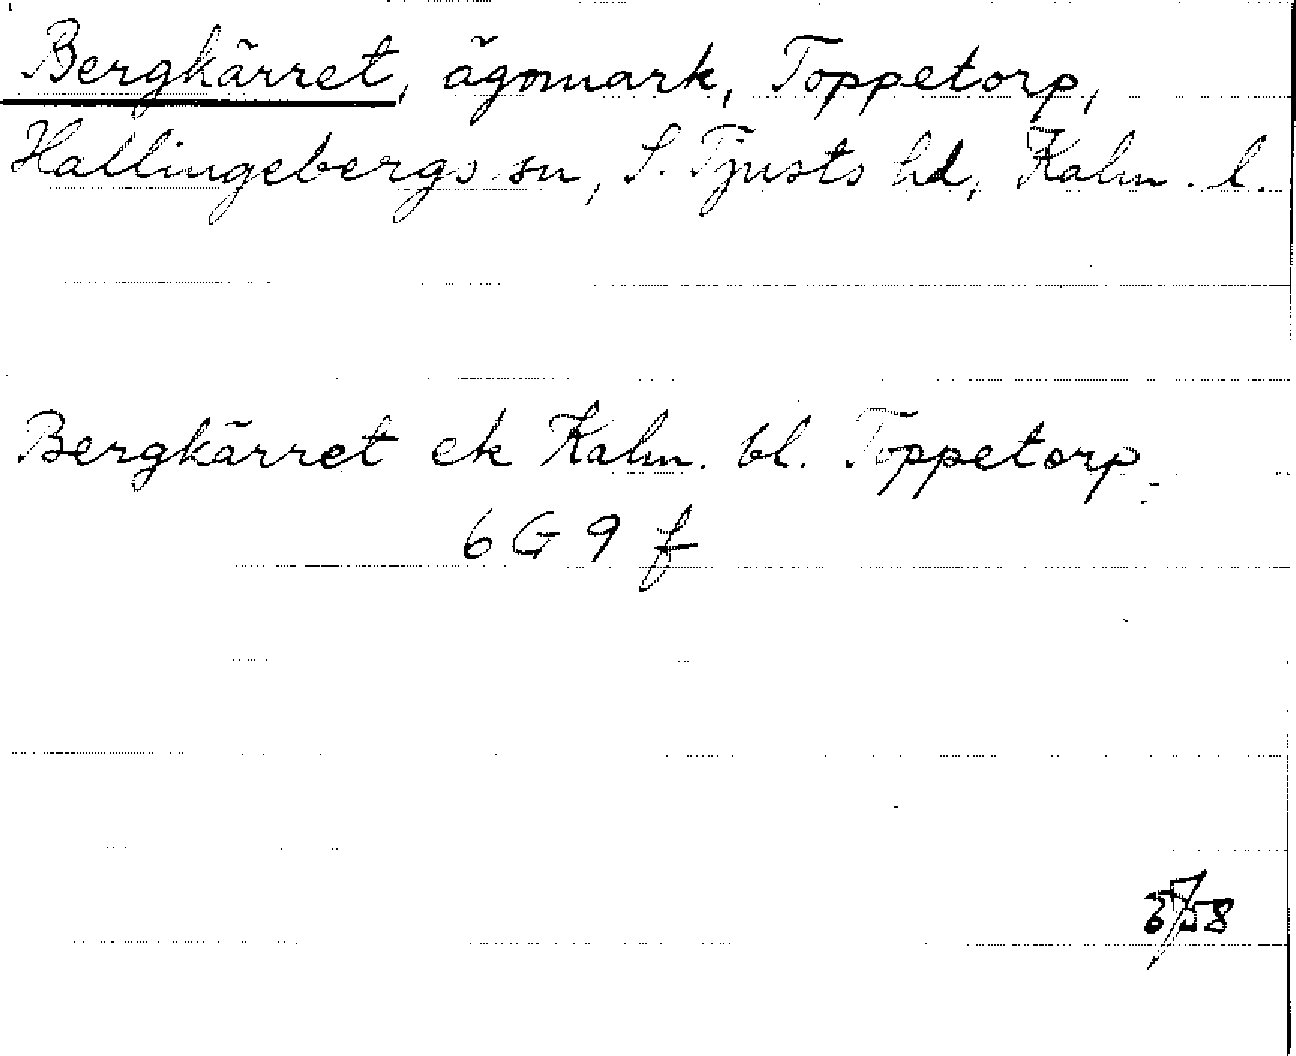 Bergkärret, ägomark, Toppetorp,
Hallingebergs sn, S. Tjusts hd, Kalm. l.
Bergkärret ek Kalm. bl. Toppetorp
6 G 9 f